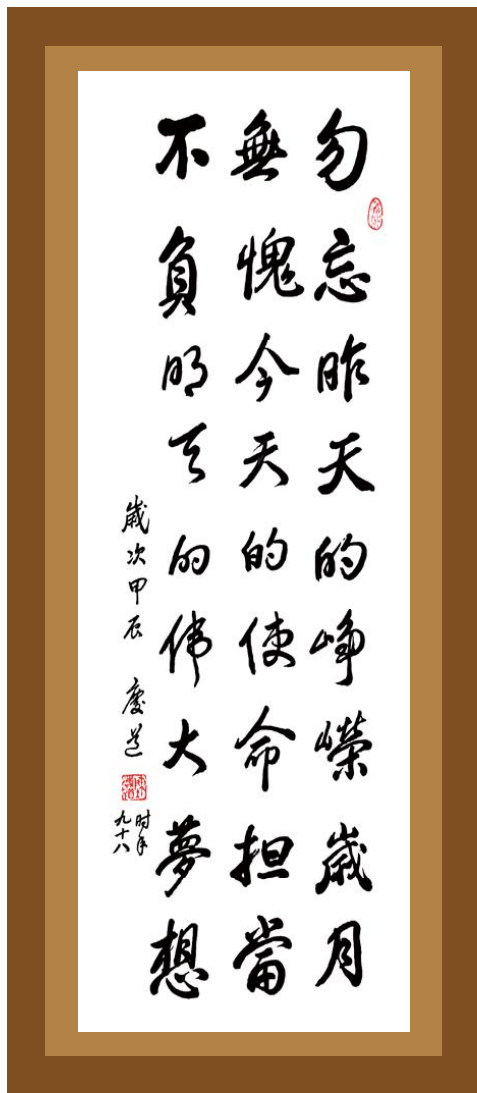 勿忘昨天的峥嵘歲月
無愧今天的使命担當
不負明天的伟大夢想
歲次甲辰 慶道
时年
九十八